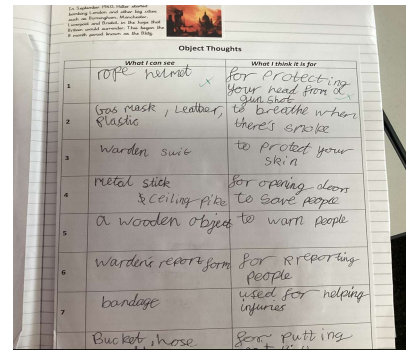 In September 1940, Hitler started
bombing London and other big cities
such as Birmingham, Manchester,
Liverpool and Bristol, in the hope that
Britain would surrender. This began the
8 month period known as the Blitz.
Object Thoughts
What I can see
What I think it is for
1
rope helmet
for protecting
your head from a
gun shot
2
Gas mask, Leather,
Plastic
to breathe when
there's smoke
3
warden suit
to protect your
skin
4
metal stick
& ceiling pike
for opening doors
to save people
5
a wooden object
to warn people
6
warden's report form
for reporting
people
7
bandage
used for helping
injuries
Bucket, hose
for putting